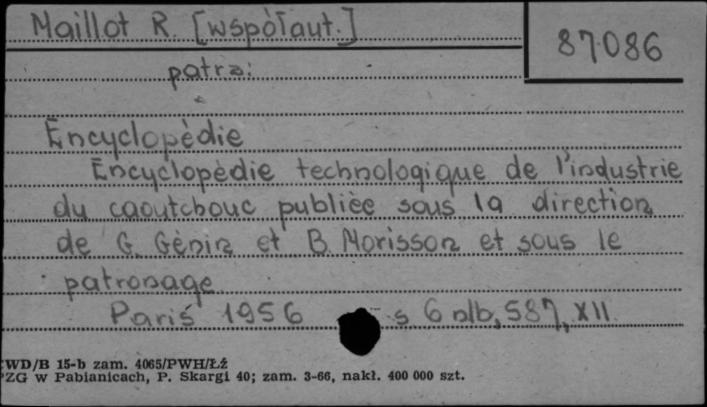 Maillot R. [współaut.]
87086
patrz:
Encyclopédie
Encyclopédie technologique de l'industrie
du caoutchouc publiée sous la direction
de G. Génin et B. Morisson et sous le
patronage
Paris 1956 s. 6 nlb, 587, XII
WD/B 15-b zam. 4065/PWH/Łź
PZG w Pabianicach, P. Skargi 40; zam. 3-66, nakł. 400 000 szt.